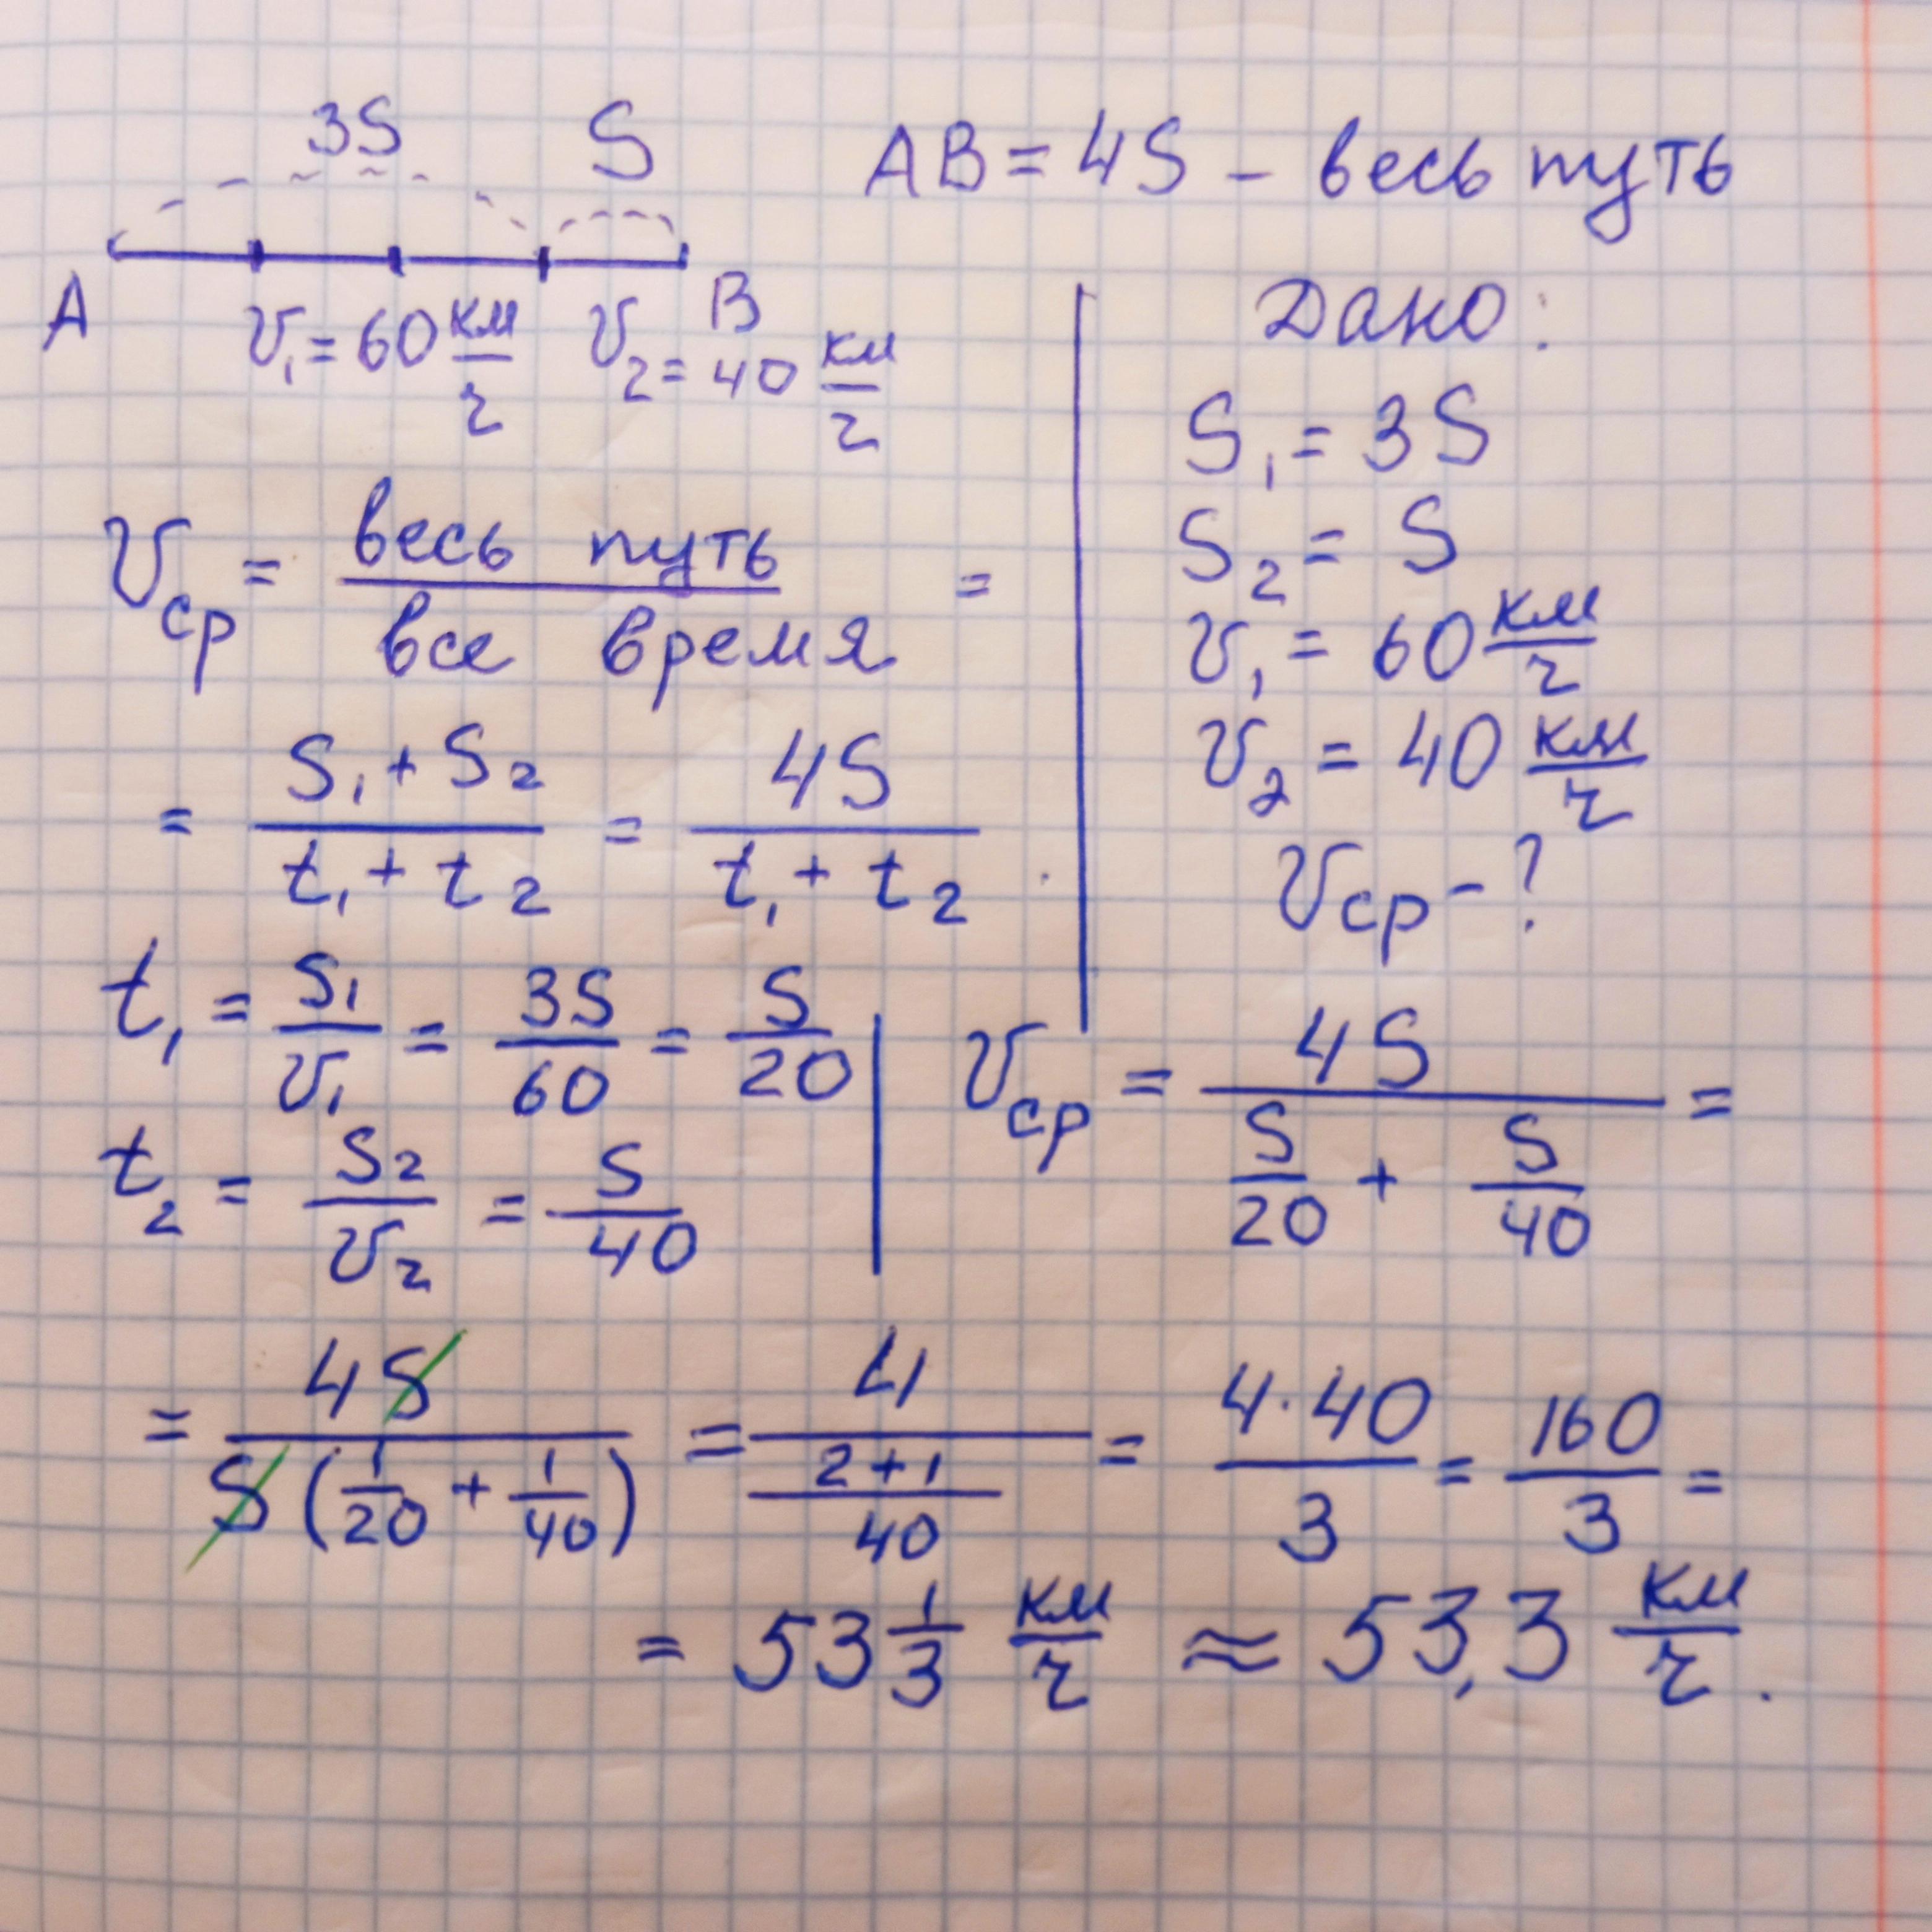 3S S AB = 4S – весь путь
A B
v₁ = 60 км/ч v₂ = 40 км/ч
Дано:
S₁ = 3S
S₂ = S
v₁ = 60 км/ч
v₂ = 40 км/ч
vср – ?
vср = весь путь / все время =
= (S₁ + S₂) / (t₁ + t₂) = 4S / (t₁ + t₂)
t₁ = S₁/v₁ = 3S/60 = S/20
t₂ = S₂/v₂ = S/40
vср = 4S / (S/20 + S/40) =
= 4S / S(1/20 + 1/40) = 4 / ((2+1)/40) = 4·40/3 = 160/3 =
= 53 1/3 км/ч ≈ 53,3 км/ч.